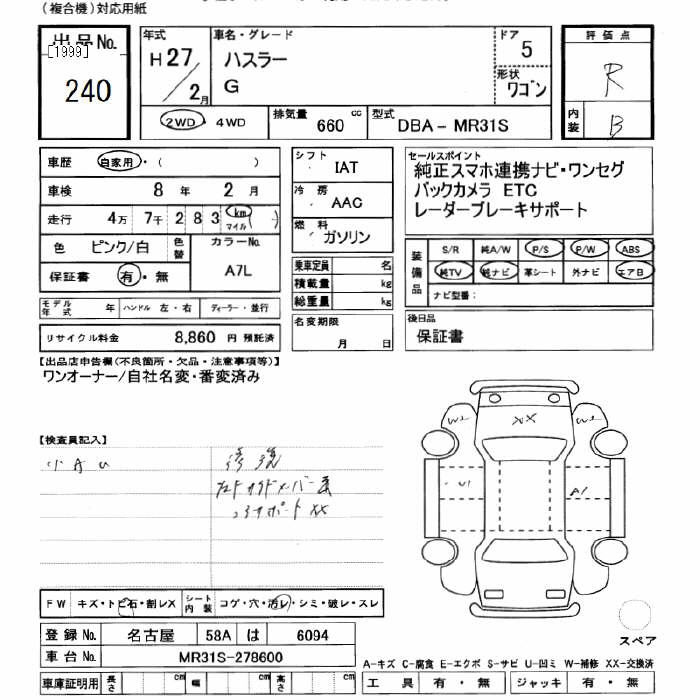 (複合機)対応用紙
出品No.
[1999]
240
年式
H27/2月
車名・グレード
ハスラー
G
ドア
5
形状
ワゴン
評価点
R
内装
B
2WD・4WD
排気量
660 cc
型式
DBA-MR31S
車歴 自家用・( )
車検 8年 2月
走行 4万 7千 2 8 3 km マイル ( )
色 ピンク/白 色替
カラーNo.
A7L
保証書 有・無
モデル年式 年 ハンドル 左・右 ディーラー・並行
リサイクル料金 8,860 円 預託済
シフト
IAT
冷房
AAC
燃料
ガソリン
乗車定員 名
積載量 kg
総重量 kg
名変期限
月 日
セールスポイント
純正スマホ連携ナビ・ワンセグ
バックカメラ ETC
レーダーブレーキサポート
装備品
S/R 純A/W P/S P/W ABS
純TV 純ナビ 革シート 外ナビ エアB
ナビ型番:
後日品
保証書
【出品店申告欄(不良箇所・欠品・注意事項等)】
ワンオーナー/自社名変・番変済み
【検査員記入】
小AU
修復
コアサポートXX
W2 XX W2
U1 A1
FW キズ・トビ石・割レX シート内装 コゲ・穴・汚レ・シミ・破レ・スレ
登録No. 名古屋 58A は 6094
車台No. MR31S-278600
車庫証明用 長さ cm 幅 cm 高さ cm
スペア
A-キズ C-腐食 E-エクボ S-サビ U-凹ミ W-補修 XX-交換済
工具 有・無 ジャッキ 有・無